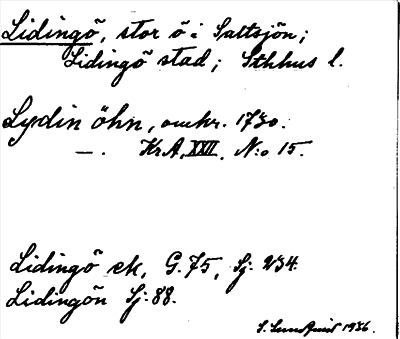 Lidingö, stor ö i Saltsjön;
Lidingö stad; Sthhus l.
Lydin öhn, omkr. 1730.
— . KrA, XXII, N:o 15.
Lidingö ek, G. 75, Sj. 234.
Lidingön Sj. 88.
S. Lundquist 1936.